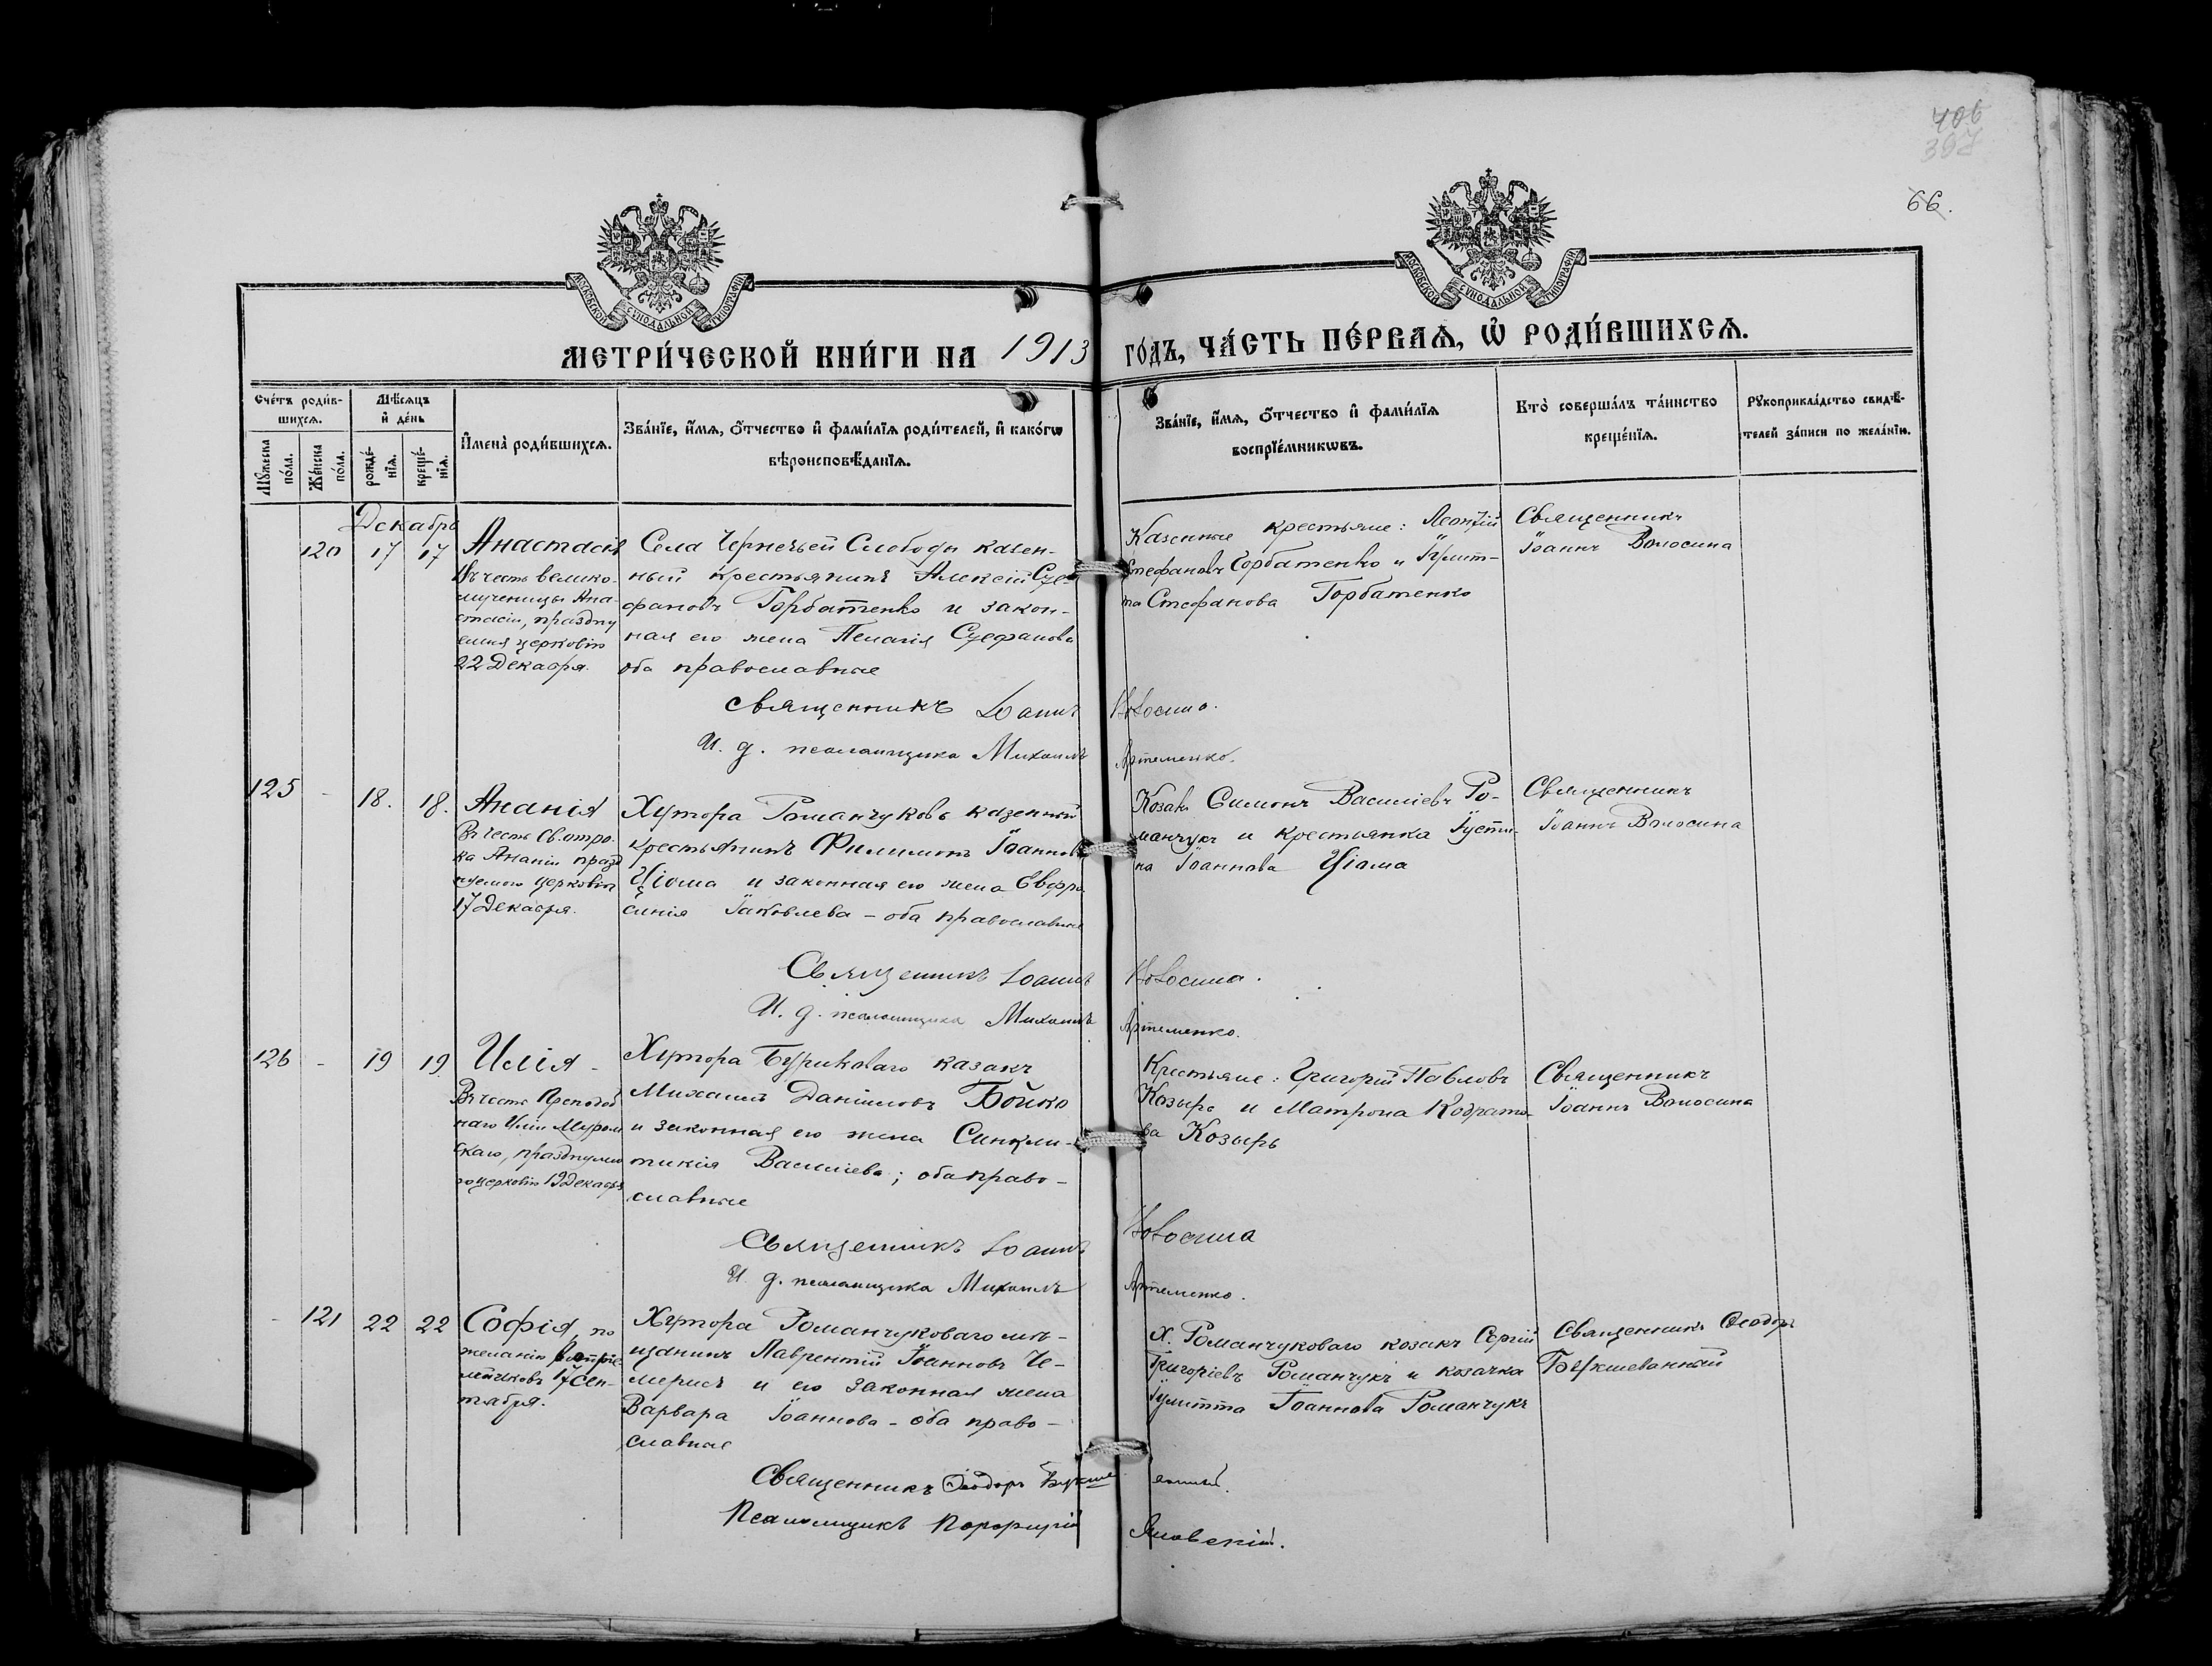 406
397
66.
МОСКОВСКОЙ СѴНОДАЛЬНОЙ ТИПОГРАФІИ
МОСКОВСКОЙ СѴНОДАЛЬНОЙ ТИПОГРАФІИ
МЕТРИ́ЧЕСКОЙ КНИ́ГИ НА 1913 ГО́ДЪ, ЧА́СТЬ ПЕ́РВАѦ, Ѡ҆ РОДИ́ВШИХСѦ.
Сче́тъ роди́в-
шихсѧ.
Мꙋ́жеска по́ла.
Же́нска по́ла.
Мѣ́сѧцъ
и҆ де́нь
рожде́-
нїѧ.
креще́-
нїѧ.
И҆мена̀ роди́вшихсѧ.
Зва́нїе, и҆́мѧ, ѻ҆́тчество и҆ фами́лїѧ роди́телей, и҆ како́гѡ
вѣроисповѣ́данїѧ.
Зва́нїе, и҆́мѧ, ѻ҆́тчество и҆ фами́лїѧ
воспрїе́мникѡвъ.
Кто̀ соверша́лъ та́инство
креще́нїѧ.
Рꙋкоприкла́дство свидѣ́-
телей за́писи по жела́нїю.
Декабрь
120 17 17 Анастасія
Въ честь велико-
мученицы Ана-
стасіи, праздну
емыя церковію
22 Декабря.
Села Чернечьей Слободы казен-
ный крестьянинъ Алексій Сте-
фановъ Горбатенко и закон-
ная его жена Пелагія Стефанова
оба православные
Казенные крестьяне: Леонтій
Стефановъ Горбатенко и Іулит-
та Стефанова Горбатенко
Священникъ
Іоаннъ Волосина
Священникъ Іоаннъ Волосина.
И. д. псаломщика Михаилъ Артеменко.
125 - 18. 18. Ананія
Въ честь Св. отро-
ка Ананіи празд
нуемого церковію
17 Декабря.
Хутора Романчуковъ казенный
крестьянинъ Филимонъ Іоанновъ
Ціома и законная его жена Евфро
синія Іаковлева - оба православные
Козакъ Симонъ Василіевъ Ро-
манчукъ и крестьянка Іусти-
на Іоаннова Ціома
Священникъ
Іоаннъ Волосина
Священникъ Іоаннъ Волосина.
И. д. псаломщика Михаилъ Артеменко.
126 - 19 19. Илія -
Въ честь Преподоб
наго Иліи Муром
скаго, празднуемо
го церковію 19 Декабря
Хутора Буриковаго казакъ
Михаилъ Даніиловъ Бойко
и законная его жена Синкли-
тикія Василіева; оба право-
славные
Крестьяне: Григорій Павловъ
Козырь и Матрона Кодрато-
ва Козырь
Священникъ
Іоаннъ Волосина
Священникъ Іоаннъ Волосина
И. д. псаломщика Михаилъ Артеменко.
- 121 22 22 Софія, по
желанію воспріе
мниковъ 17 Сен-
тября.
Хутора Романчуковаго мѣ-
щанинъ Лаврентій Іоанновъ Че-
мерисъ и его законная жена
Варвара Іоаннова - оба право-
славные
Х. Романчуковаго козакъ Сергій
Григоріевъ Романчукъ и козачка
Іулитта Іоаннова Романчукъ
Священникъ Ѳеодоръ
Букшеванный
Священникъ Ѳеодоръ Букшеванный.
Псаломщикъ Порфирій Яновскій.